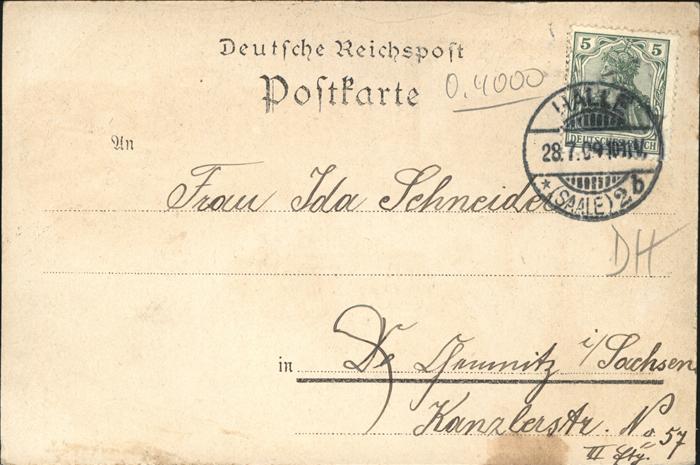 Deutsche Reichspost
Postkarte
0,4000
5 5
DEUTSCHES REICH
HALLE
28.7.09 10-11V.
* (SAALE) 2 b
An
Frau Ida Schneider
DH
in Chemnitz i/Sachsen
Kanzlerstr. No 57
II Etg.